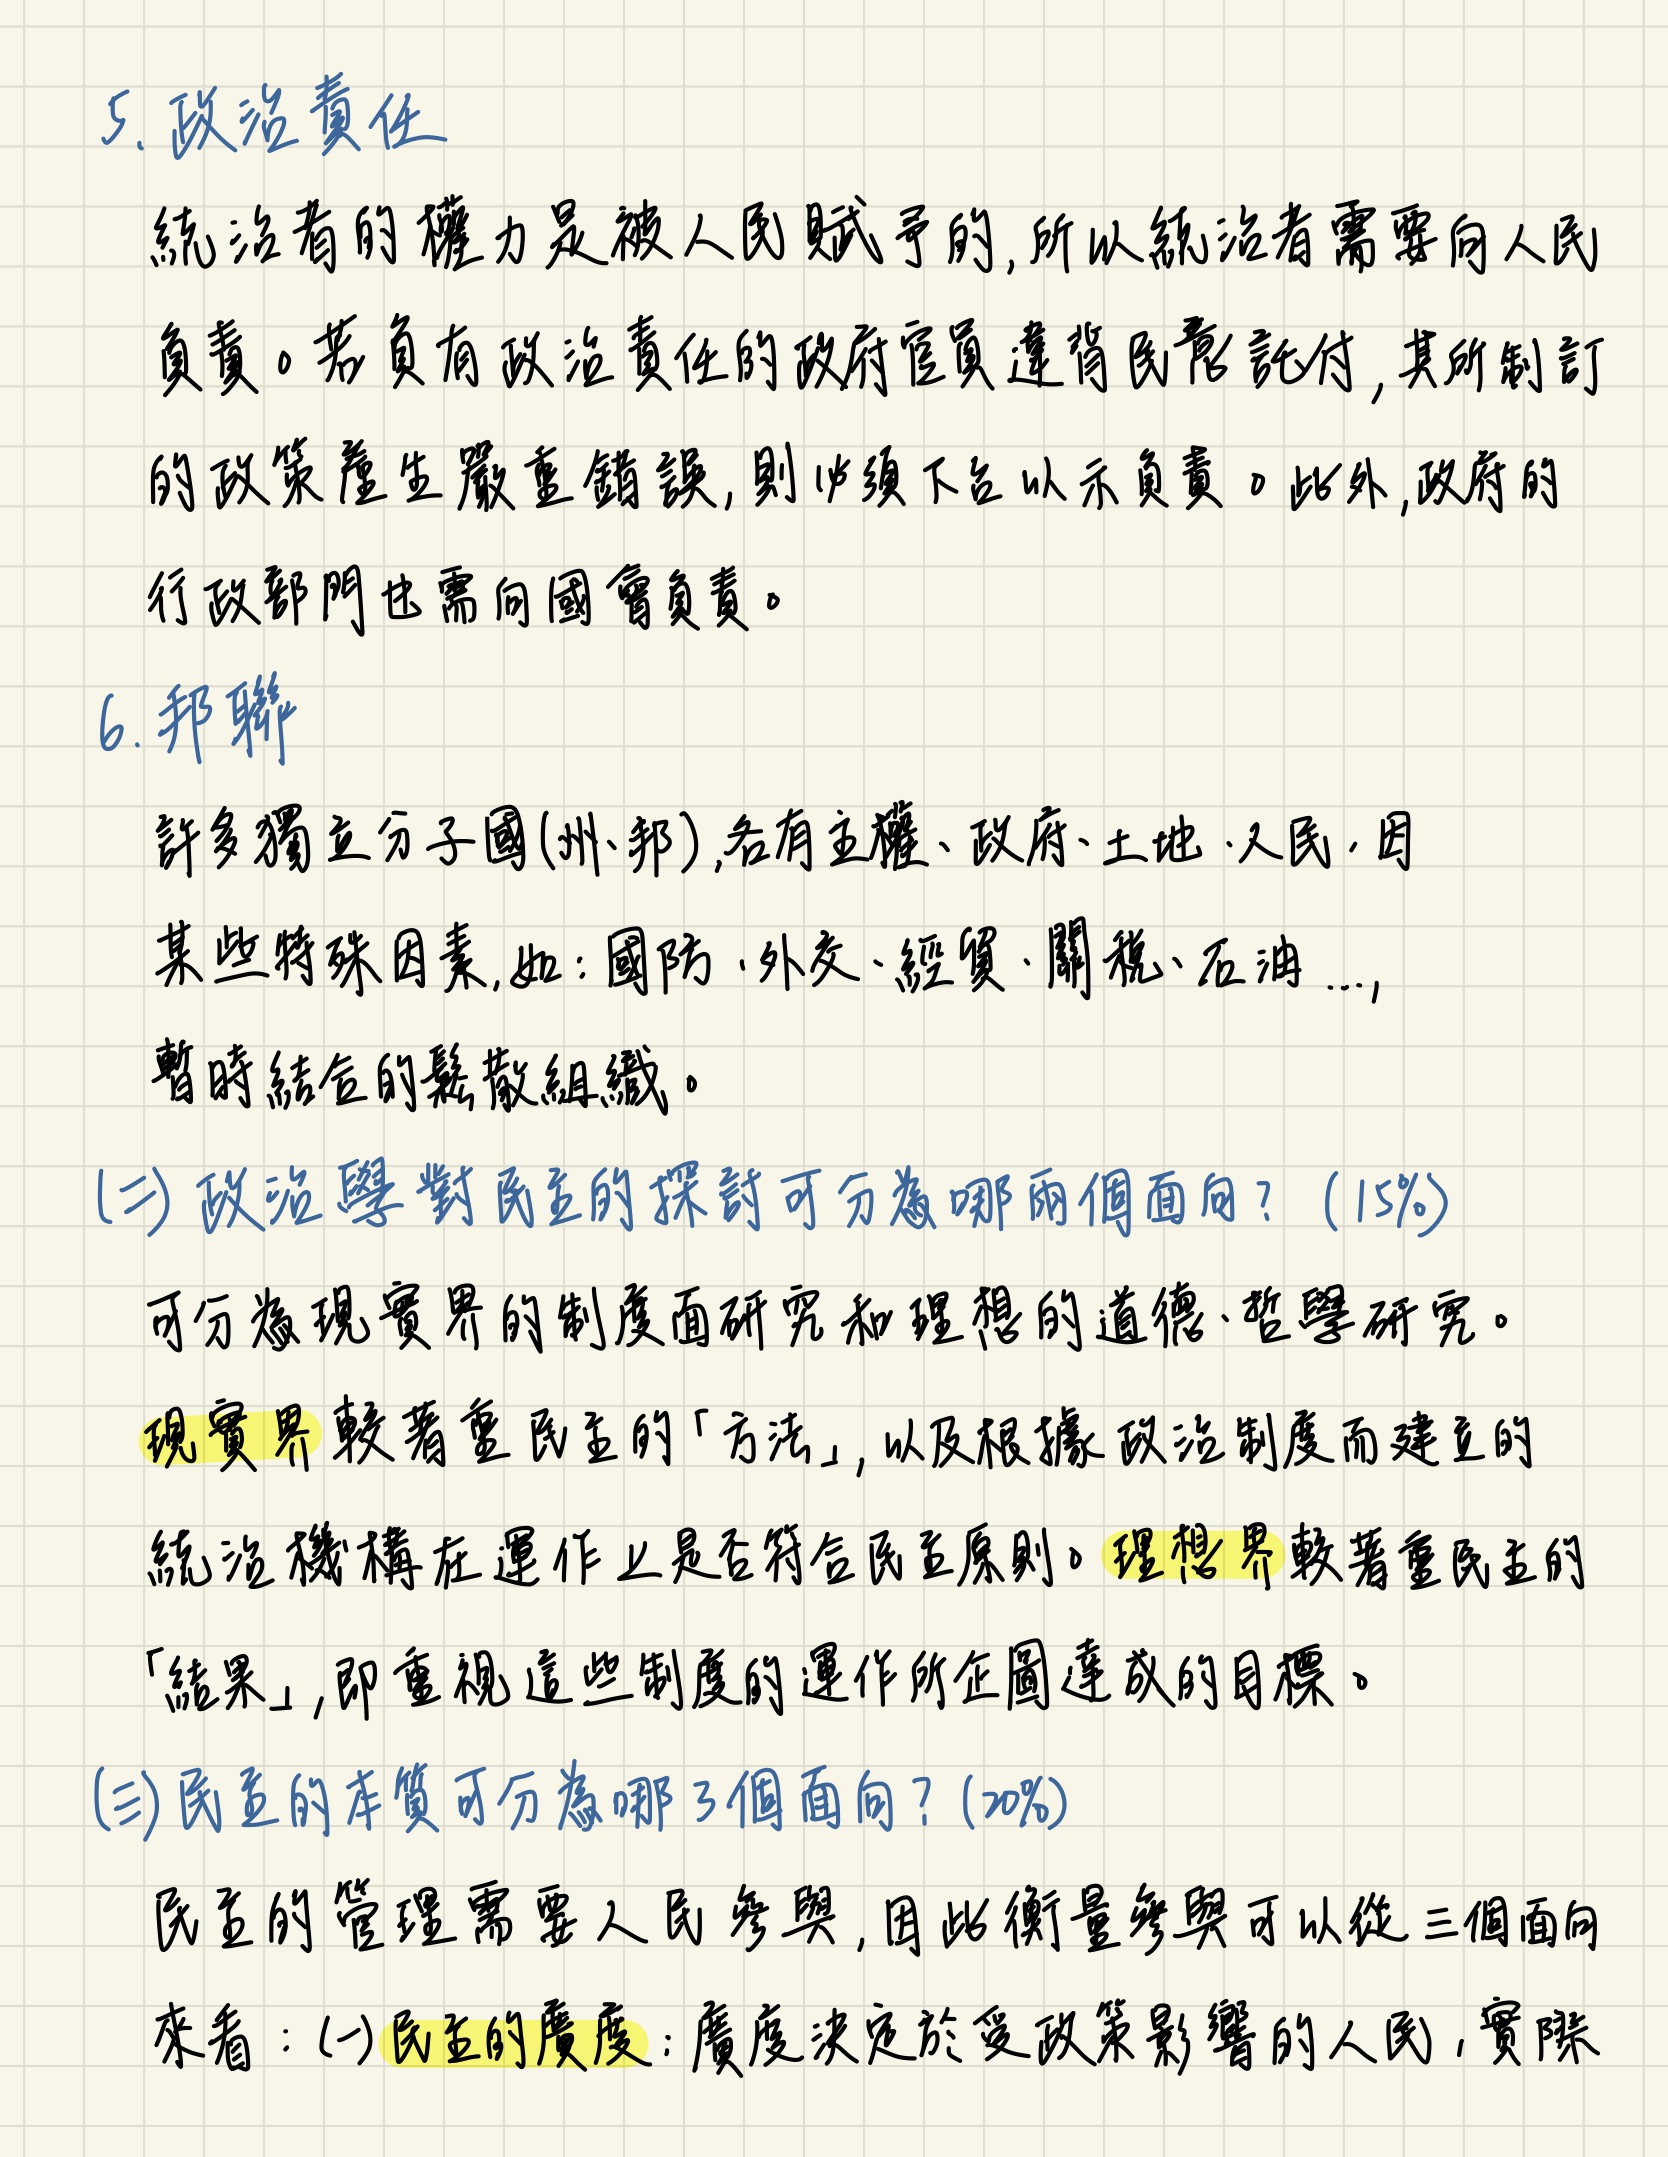 5. 政治責任
統治者的權力是被人民賦予的,所以統治者需要向人民
負責。若負有政治責任的政府官員違背民意託付,其所制訂
的政策產生嚴重錯誤,則必須下台以示負責。此外,政府的
行政部門也需向國會負責。
6. 邦聯
許多獨立分子國(州、邦),各有主權、政府、土地、人民,因
某些特殊因素,如:國防、外交、經貿、關稅、石油…,
暫時結合的鬆散組織。
(二)政治學對民主的探討可分為哪兩個面向?(15%)
可分為現實界的制度面研究和理想的道德、哲學研究。
現實界較著重民主的「方法」,以及根據政治制度而建立的
統治機構在運作上是否符合民主原則。理想界較著重民主的
「結果」,即重視這些制度的運作所企圖達成的目標。
(三)民主的本質可分為哪3個面向?(20%)
民主的管理需要人民參與,因此衡量參與可以從三個面向
來看:(一)民主的廣度:廣度決定於受政策影響的人民,實際